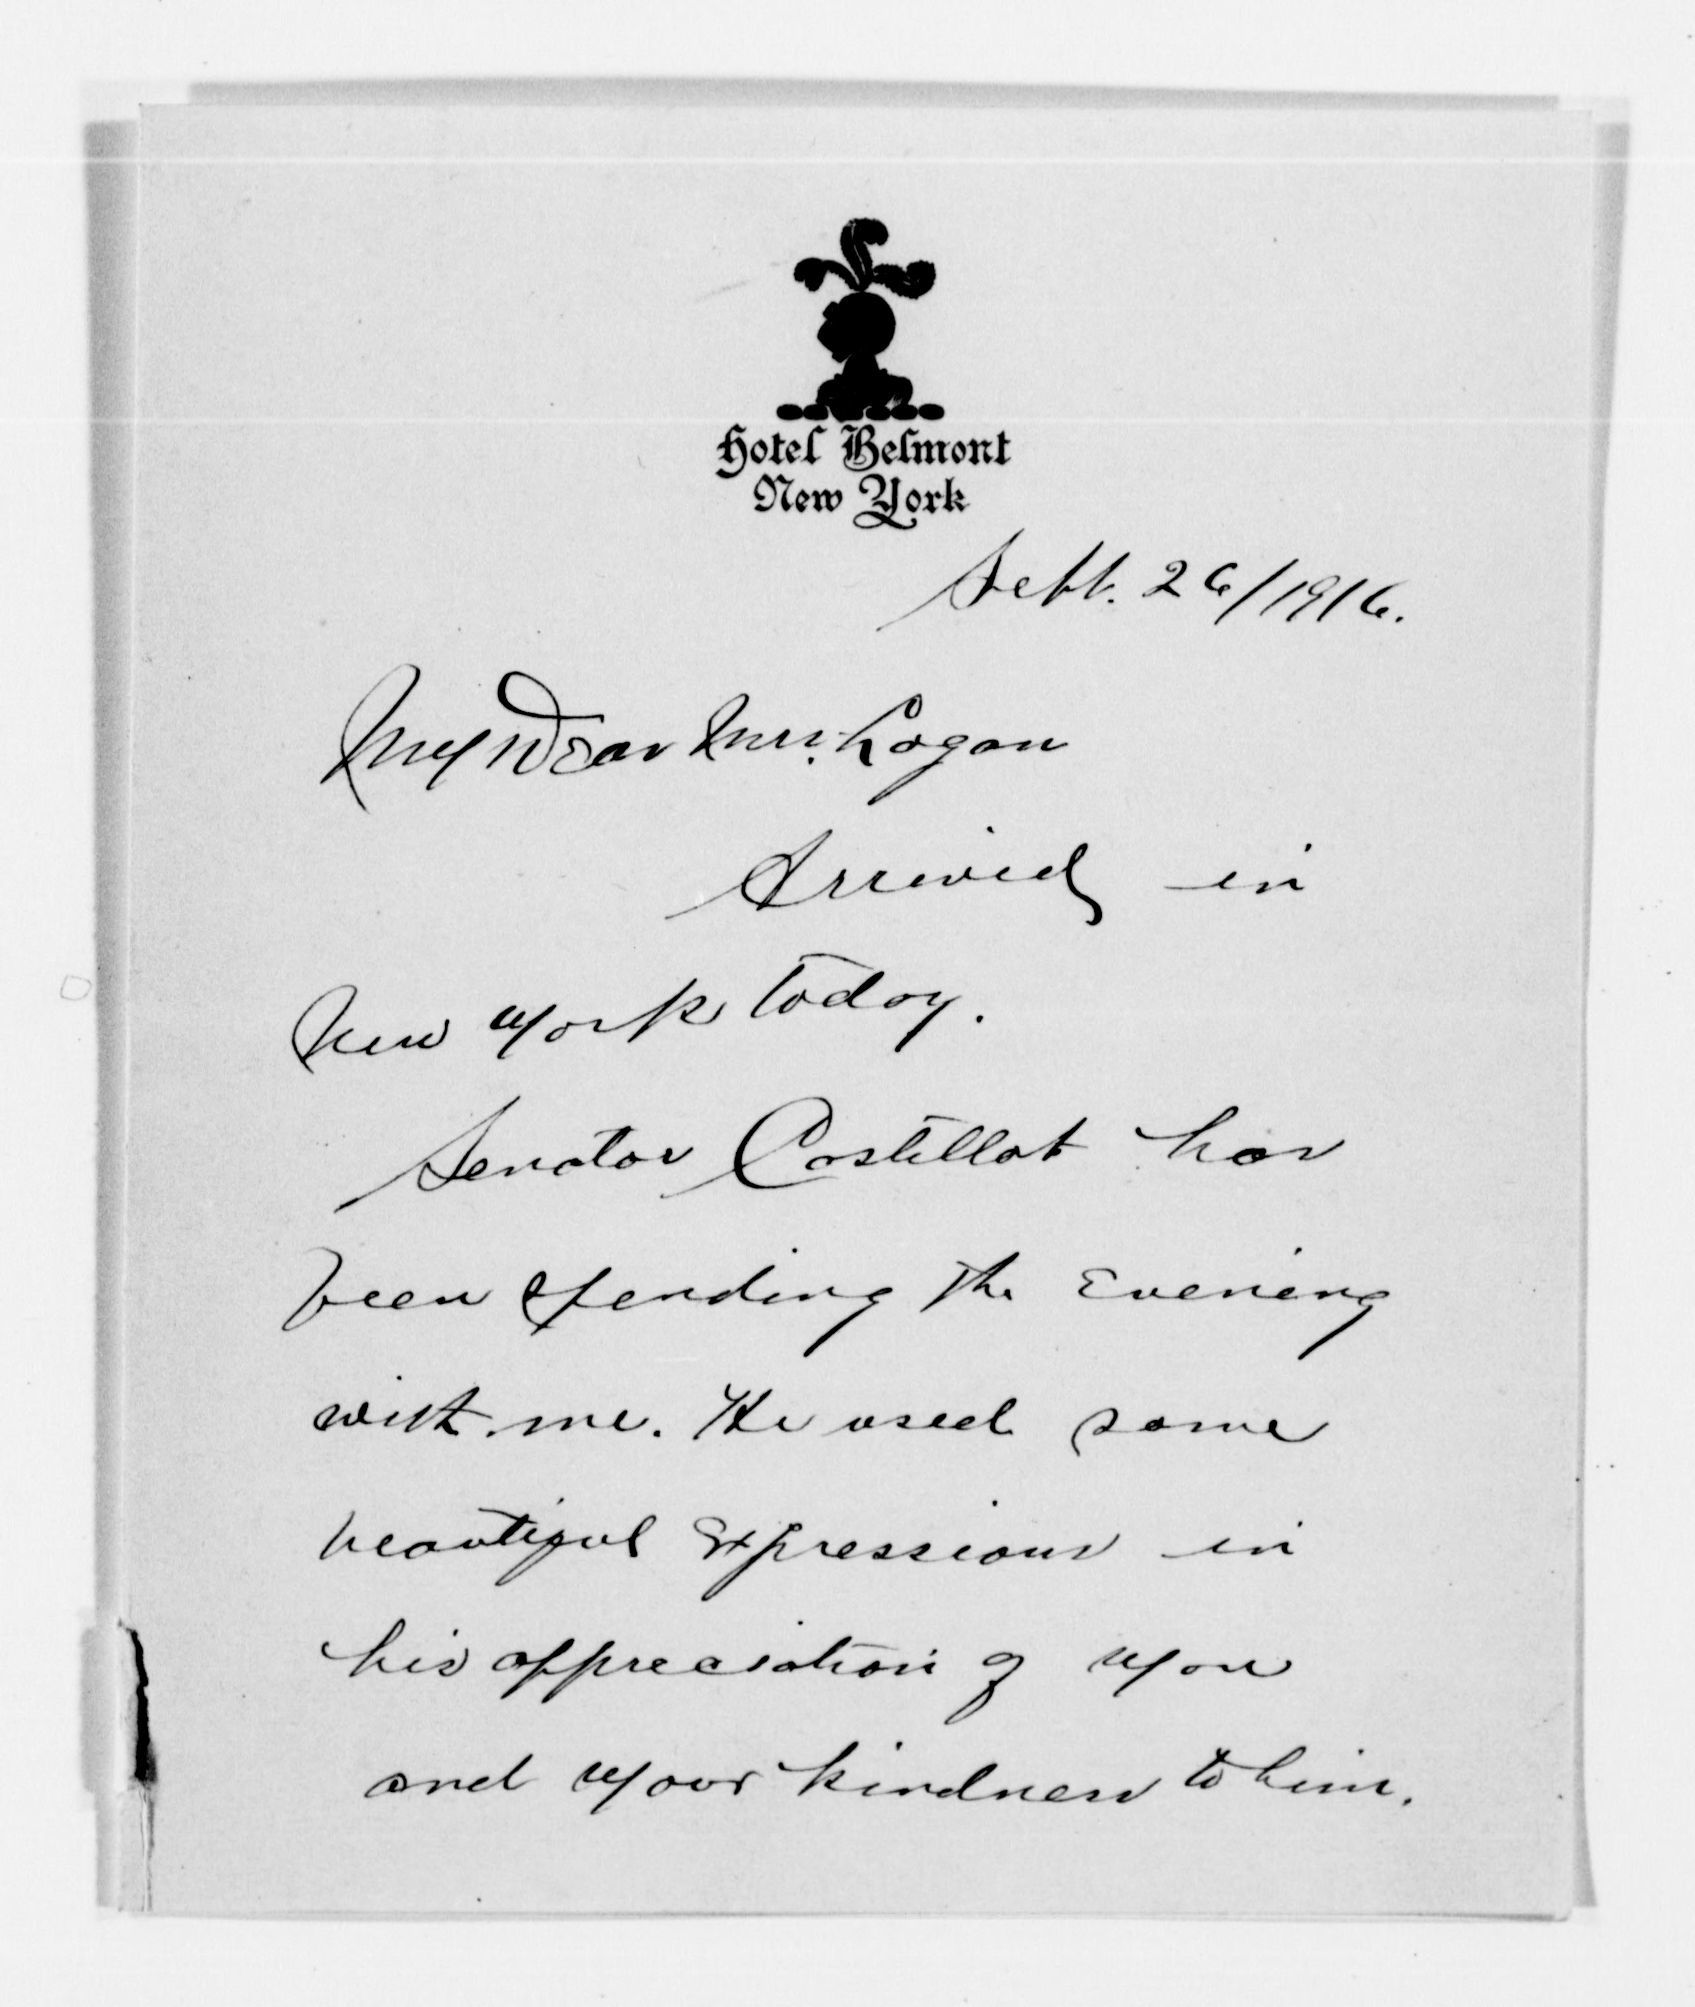 Hotel Belmont
New York
Sept. 26/1916.
My Dear Mrs. Logan
Arrived in
New York today.
Senator Costellot has
been spending the Evening
with me. He used some
beautiful Expressions in
his appreciation of you
and your kindness to him.